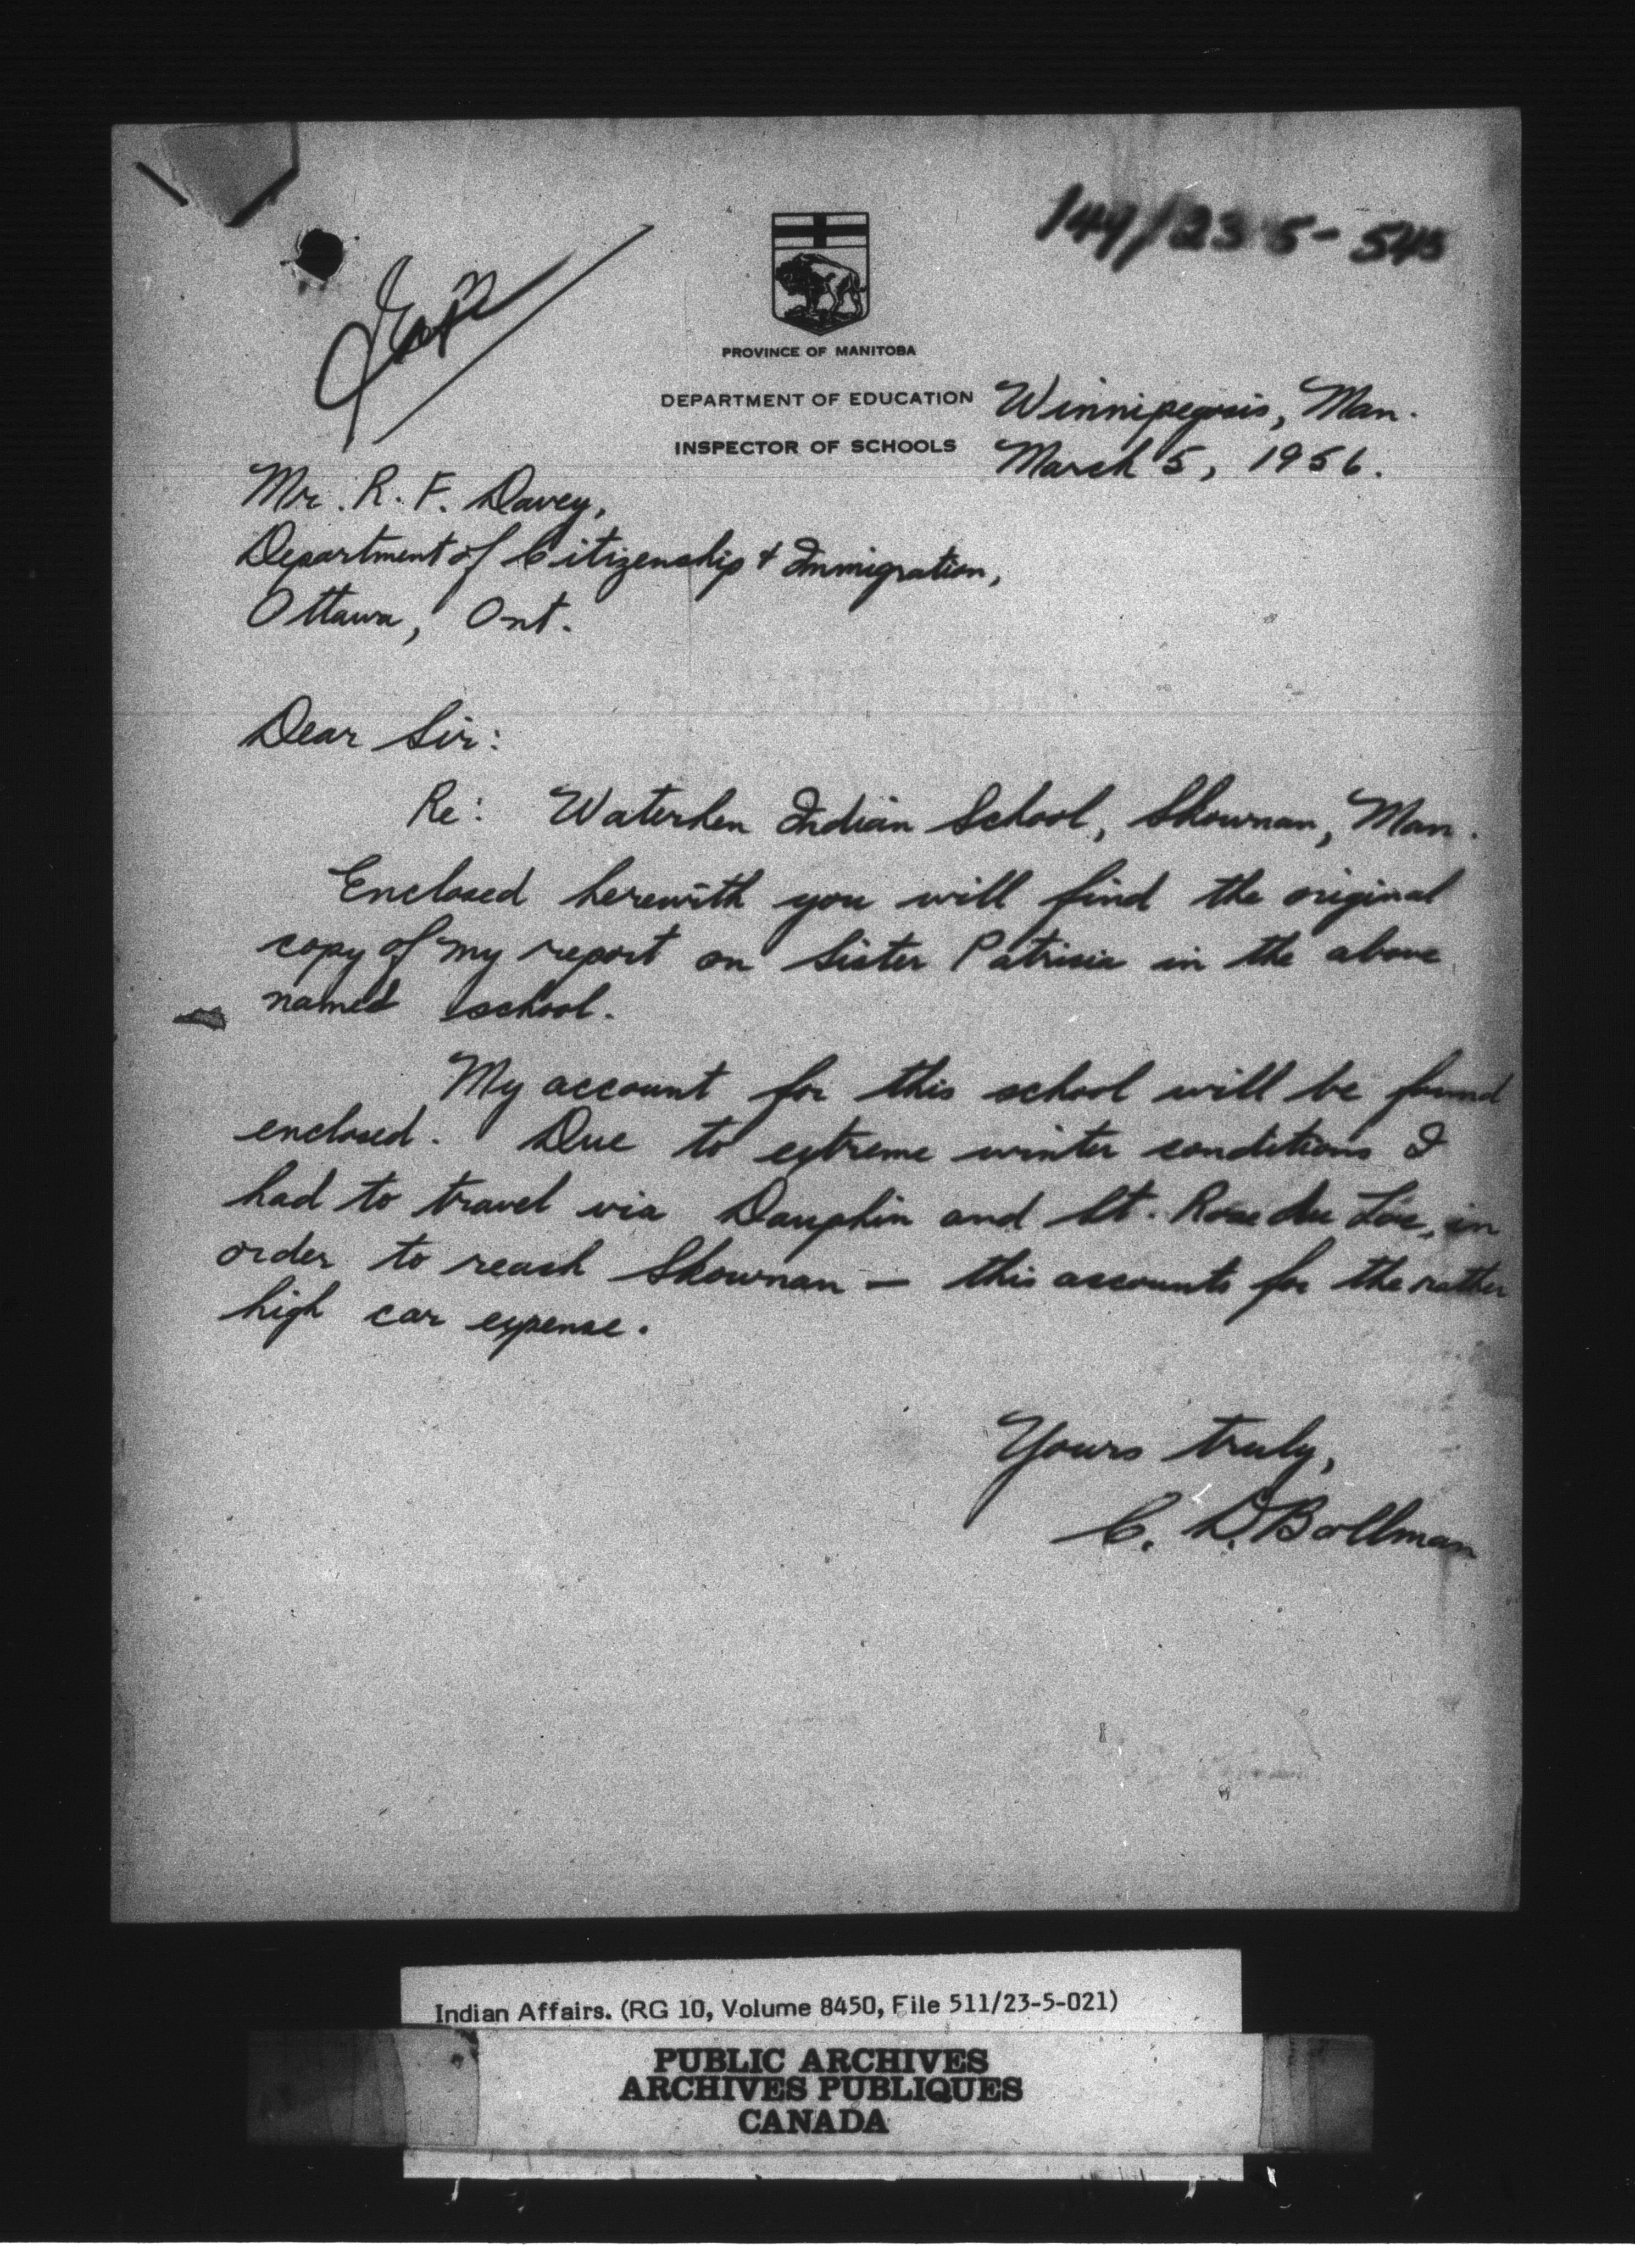 144/23-5-545
PROVINCE OF MANITOBA
DEPARTMENT OF EDUCATION
INSPECTOR OF SCHOOLS
Winnipegosis, Man.
March 5, 1956.
Mr. R. F. Davey,
Department of Citizenship & Immigration,
Ottawa, Ont.
Dear Sir:
Re: Waterhen Indian School, Skownan, Man.
Enclosed herewith you will find the original
copy of my report on Sister Patricia in the above
named school.
My account for this school will be found
enclosed. Due to extreme winter conditions I
had to travel via Dauphin and St. Rose du Lac, in
order to reach Skownan — this accounts for the rather
high car expense.
Yours truly,
C. D. Bollman
Indian Affairs. (RG 10, Volume 8450, File 511/23-5-021)
PUBLIC ARCHIVES
ARCHIVES PUBLIQUES
CANADA